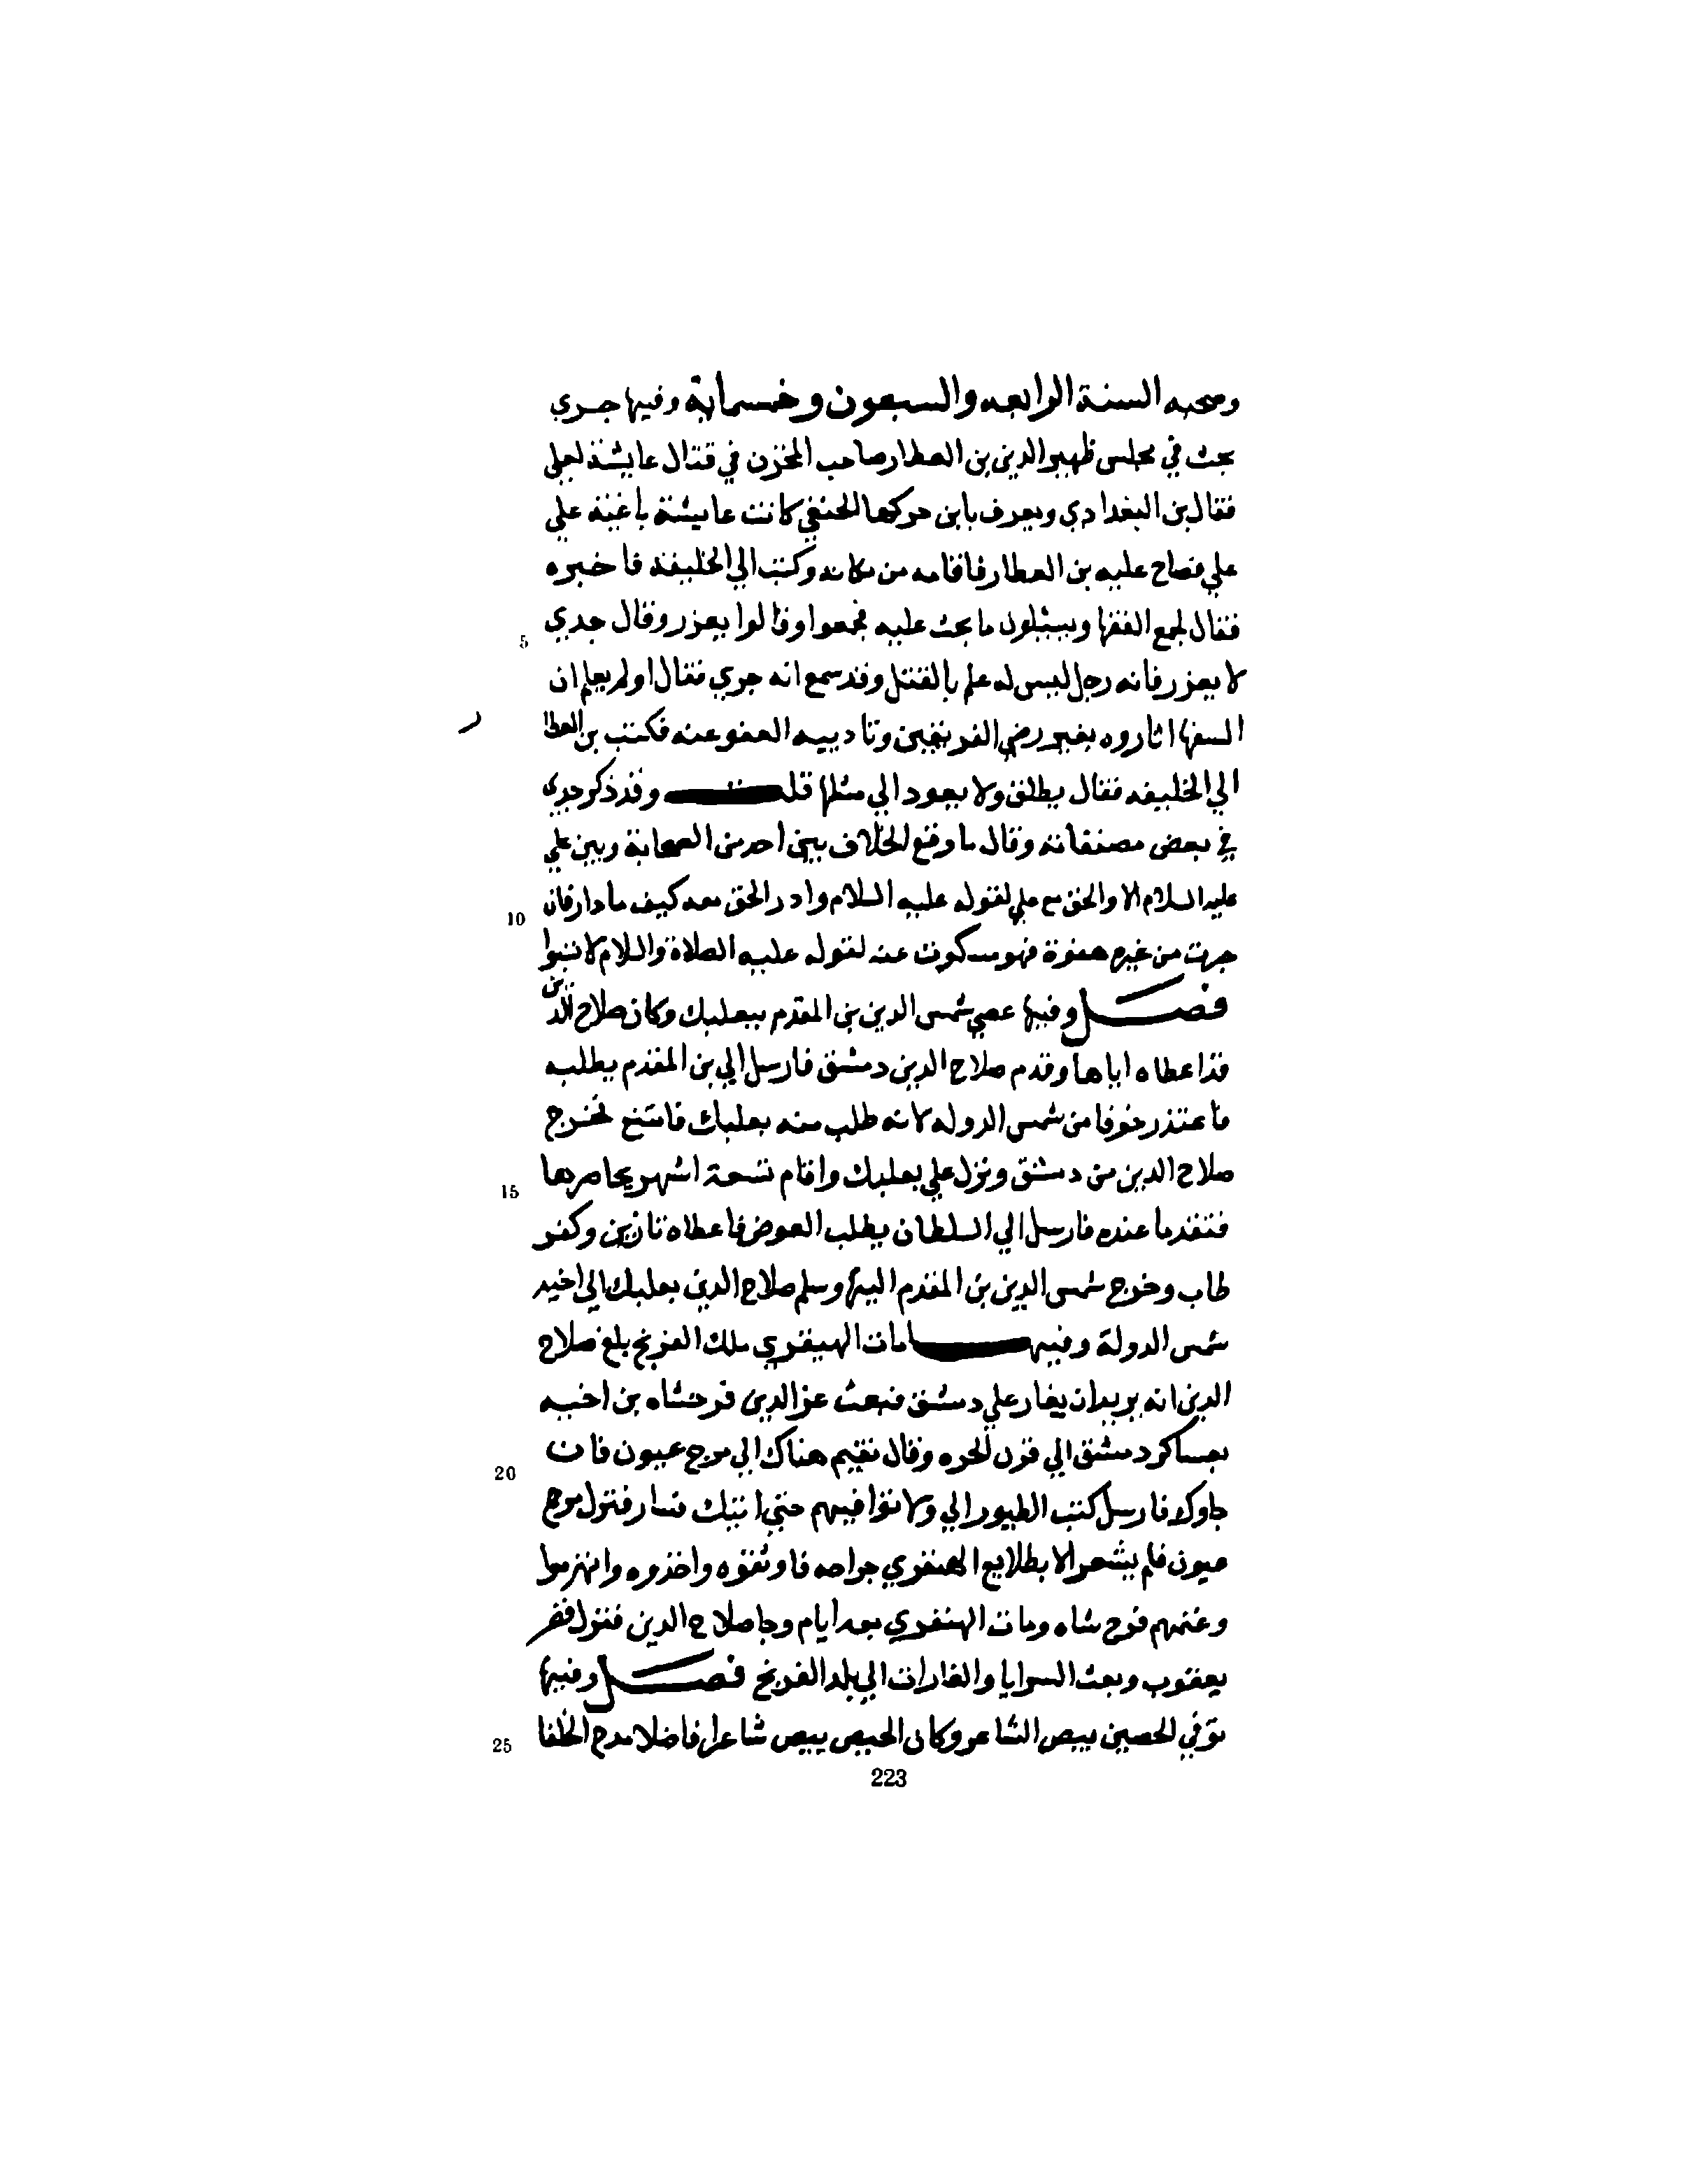 وصحبه السنة الرابعه والسبعون وخسماية وفيها جري
بحث في مجلس ظهير الدين بن العطار صاحب المخزن في قتال عايشة لعلي
فقال بن البغدادي ويعرف بابن حركها الحنفي كانت عايشة باغية علي
علي فصاح عليه بن العطار فاقامه من مكانه وكتب الي الخليفة فاخبره
فقال لجمع الفقها ويسئلون ما يجب عليه فجمعوا وقالوا يعزر وقال جدي
5
لا يعزر فانه رجل ليس له علم بالقتل وقد سمع انه جري فقال اولم يعلم ان
السفها اثاروه بغير رضي الفريقين وتاديبه العفو عنه فكتب بن العطار
الي الخليفه فقال يطلق ولا يعود الي مثلها قلت وقد ذكر جدي
في بعض مصنفاته وقال ما وقع الخلاف بين احد من الصحابة وبين علي
عليه السلام الا والحق مع علي لقوله عليه السلام وادر الحق معه كيف ما دار فان
10
جرت من غيره هفوة فهو سكوت عنه لقوله عليه الصلاة والسلام لا تسبوا
فصل وفيها عصي شمس الدين بن المقدم ببعلبك وكان صلاح الدين
قد اعطاه اياها وقدم صلاح الدين دمشق فارسل الي بن المقدم يطلبه
فاعتذر خوفا من شمس الدوله لانه طلب منه بعلبك فامتنع فخرج
صلاح الدين من دمشق ونزل علي بعلبك واقام تسعة اشهر يحاصرها
15
فنفد ما عنده فارسل الي السلطان يطلب العوض فاعطاه بارين وكفر
طاب وخرج شمس الدين بن المقدم اليها وسلم صلاح الدين بعلبك الي اخيه
شمس الدولة وفيها مات الهنفري ملك الفرنج بلغ صلاح
الدين انه يريد ان يغار علي دمشق فبعث عز الدين فرخشاه بن اخيه
بعساكر دمشق الي قرن الحره وقال نقيم هناك الي مرج عيون فان
20
جاوك فارسل كتب الطيور الي ولا تواقيهم حتي اتيك فسار فنزل مرج
عيون فلم يشعر الا بطلايع الهنفري جراحه فاوثقوه واخذوه وانهزموا
وغنمهم فرخ شاه ومات الهنفري بعد ايام وجا صلاح الدين فنزل قصر
يعقوب وبعث السرايا والغارات الي بلد الفرنج فصل وفيها
توفي الحصين بيص الشاعر وكان الحيص بيص شاعرا فاضلا مدح الخلفا
25
223